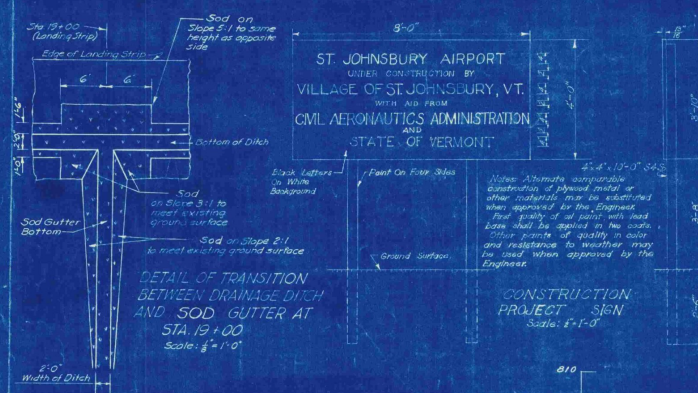 Sta. 19+00
(Landing Strip)
Sod on
Slope 5:1 to same
height as opposite
side
Edge of Landing Strip
6'
6'
1'-6"
1'-0"
Bottom of Ditch
Sod
on Slope 3:1 to
meet existing
ground surface
Sod Gutter
Bottom
Sod on Slope 2:1
to meet existing ground surface
DETAIL OF TRANSITION
BETWEEN DRAINAGE DITCH
AND SOD GUTTER AT
STA. 19+00
2'-0"
Width of Ditch
8'-0"
ST. JOHNSBURY AIRPORT
UNDER CONSTRUCTION BY
VILLAGE OF ST. JOHNSBURY, VT.
WITH AID FROM
CIVIL AERONAUTICS ADMINISTRATION
AND
STATE OF VERMONT
4'-0"
Black Letters
On White
Background
Paint On Four Sides
4"x4"x10'-0" S4S
Notes: Alternate comparable
construction of plywood metal or
other materials may be substituted
when approved by the Engineer.
First quality of oil paint with lead
base shall be applied in two coats.
Other paints of quality in color
and resistance to weather may
be used when approved by the
Engineer.
Ground Surface
CONSTRUCTION
PROJECT SIGN
810